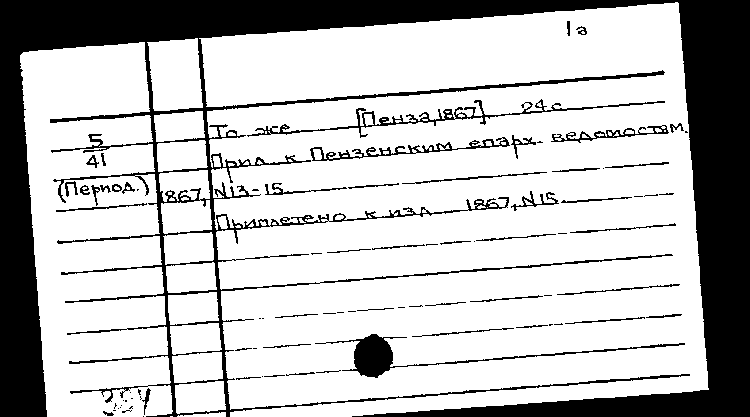 1а
5
То же [Пенза, 1867]. 24 с.
41
Прил. к Пензенским епарх. ведомостям.
(Период.) 1867, N13-15.
Приплетено к изд. 1867, N15.